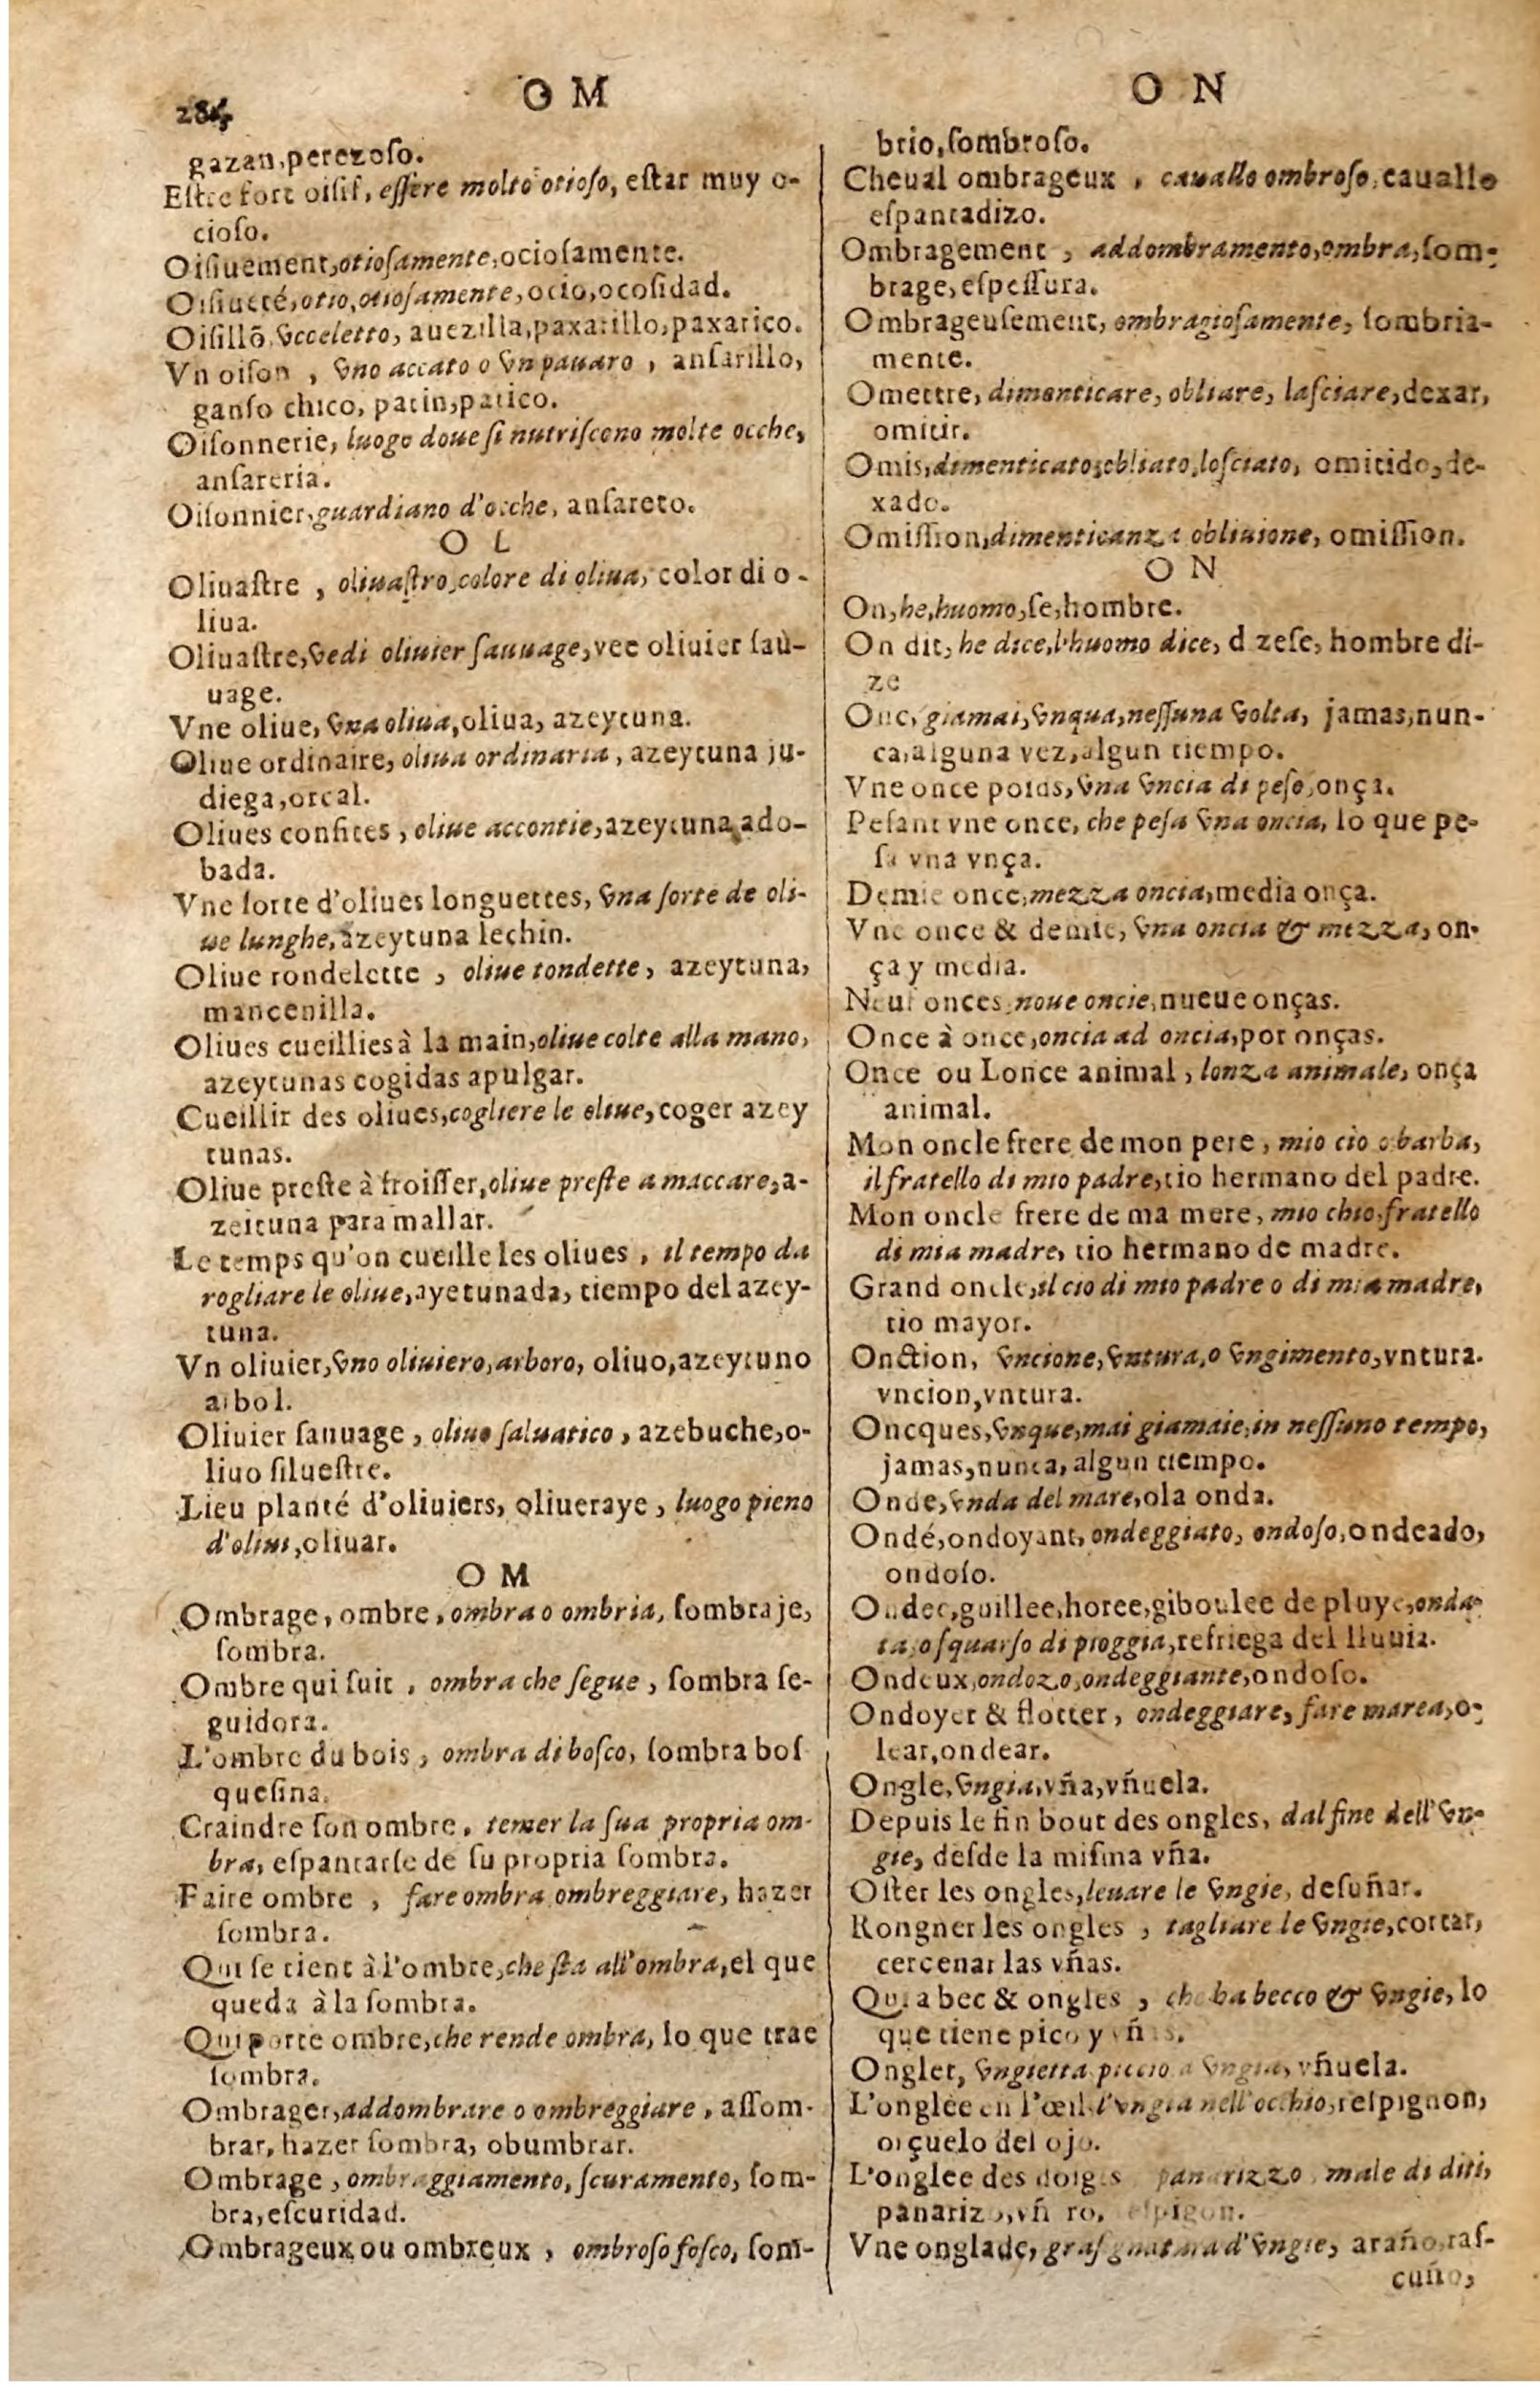 284
O M
gazan, perezoſo.
Eſtre fort oiſif, eſſere molto otioſo, eſtar muy o-
cioſo.
Oiſiuement, otioſamente, ocioſamente.
Oiſiueté, otio, otioſamente, ocio, ocoſidad.
Oiſillõ, vcceletto, auezilla, paxarillo, paxarico.
Vn oiſon , vno accato o vn pauaro , anſarillo,
ganſo chico, patin, patico.
Oiſonnerie, luogo doue ſi nutriſcono molte ocche,
anſareria.
Oiſonnier, guardiano d'ocche, anſareto.
O L
Oliuaſtre , oliuaſtro, colore di oliua, color di o-
liua.
Oliuaſtre, vedi oliuier ſauuage, vee oliuier ſau-
uage.
Vne oliue, vna oliua, oliua, azeytuna.
Oliue ordinaire, oliua ordinaria, azeytuna ju-
diega, orcal.
Oliues confites , oliue accontie, azeytuna ado-
bada.
Vne ſorte d'oliues longuettes, vna ſorte de oli-
ue lunghe, azeytuna lechin.
Oliue rondelette , oliue tondette, azeytuna,
mancenilla.
Oliues cueillies à la main, oliue colte alla mano,
azeytunas cogidas apulgar.
Cueillir des oliues, cogliere le oliue, coger azey
tunas.
Oliue preſte à froiſſer, oliue preſte a maccare, a-
zeituna para mallar.
Le temps qu'on cueille les oliues , il tempo da
rogliare le oliue, ayetunada, tiempo del azey-
tuna.
Vn oliuier, vno oliuiero, arboro, oliuo, azeytuno
arbol.
Oliuier ſauuage , oliuo ſaluatico , azebuche, o-
liuo ſilueſtre.
Lieu planté d'oliuiers, oliueraye , luogo pieno
d'oliui, oliuar.
O M
Ombrage, ombre, ombra o ombria, ſombraje,
ſombra.
Ombre qui ſuit , ombra che ſegue , ſombra ſe-
guidora.
L'ombre du bois , ombra di boſco, ſombra boſ
queſina.
Craindre ſon ombre, temer la ſua propria om-
bra, eſpantarſe de ſu propria ſombra.
Faire ombre , fare ombra ombreggiare, hazer
ſombra.
Qui ſe tient à l'ombre, che ſta all'ombra, el que
queda à la ſombra.
Qui porte ombre, che rende ombra, lo que trae
ſombra.
Ombrager, addombrare o ombreggiare , aſſom-
brar, hazer ſombra, obumbrar.
Ombrage , ombraggiamento, ſcuramento, ſom-
bra, eſcuridad.
Ombrageux ou ombreux , ombroſo foſco, ſom-
O N
brio, ſombroſo.
Cheual ombrageux , cauallo ombroſo, cauallo
eſpantadizo.
Ombragement , addombramento, ombra, ſom-
brage, eſpeſſura.
Ombrageuſement, ombragioſamente, ſombria-
mente.
Omettre, dimenticare, obliare, laſciare, dexar,
omitir.
Omis, dimenticato, obliato, loſciato, omitido, de-
xado.
Omiſſion, dimenticanza obliuione, omiſſion.
O N
On, he, huomo, ſe, hombre.
On dit, he dice, l'huomo dice, d zeſe, hombre di-
ze
Onc, giamai, vnqua, neſſuna volta, jamas, nun-
ca, alguna vez, algun tiempo.
Vne once poids, vna vncia di peſo, onça.
Peſant vne once, che peſa vna oncia, lo que pe-
ſa vna vnça.
Demie once, mezza oncia, media onça.
Vne once & demie, vna oncia & mezza, on-
ça y media.
Neuf onces, noue oncie, nueue onças.
Once à once, oncia ad oncia, por onças.
Once ou Lonce animal , lonza animale, onça
animal.
Mon oncle frere de mon pere , mio cio o barba,
il fratello di mio padre, tio hermano del padre.
Mon oncle frere de ma mere , mio chio, fratello
di mia madre, tio hermano de madre.
Grand oncle, il cio di mio padre o di mia madre,
tio mayor.
Onction, vncione, vntura, o vngimento, vntura.
vncion, vntura.
Oncques, vnque, mai giamaie, in neſſuno tempo,
jamas, nunca, algun tiempo.
Onde, vnda del mare, ola onda.
Ondé, ondoyant, ondeggiato, ondoſo, ondeado,
ondoſo.
Ondee, guillee, horee, giboulee de pluye, onda-
ta, o ſquarſo di pioggia, refriega del lluuia.
Ondeux, ondozo, ondeggiante, ondoſo.
Ondoyer & flotter , ondeggiare, fare marea, o-
lear, ondear.
Ongle, vngia, vña, vñuela.
Depuis le fin bout des ongles, dal fine dell'vn-
gie, deſde la miſma vña.
Oſter les ongles, leuare le vngie, deſuñar.
Rongner les ongles , tagliare le vngie, cortar,
cercenar las vñas.
Qui a bec & ongles , che ha becco & vngie, lo
que tiene pico y vñas.
Onglet, vngietta piccio a vngia, vñuela.
L'onglee en l'œil l'vngia nell'occhio, reſpignon,
orçuelo del ojo.
L'onglee des doigts panarizzo, male di diti,
panarizo, vñ ro, eſpigon.
Vne onglade, graſgnatura d'vngie, araño, raſ-
cuño,